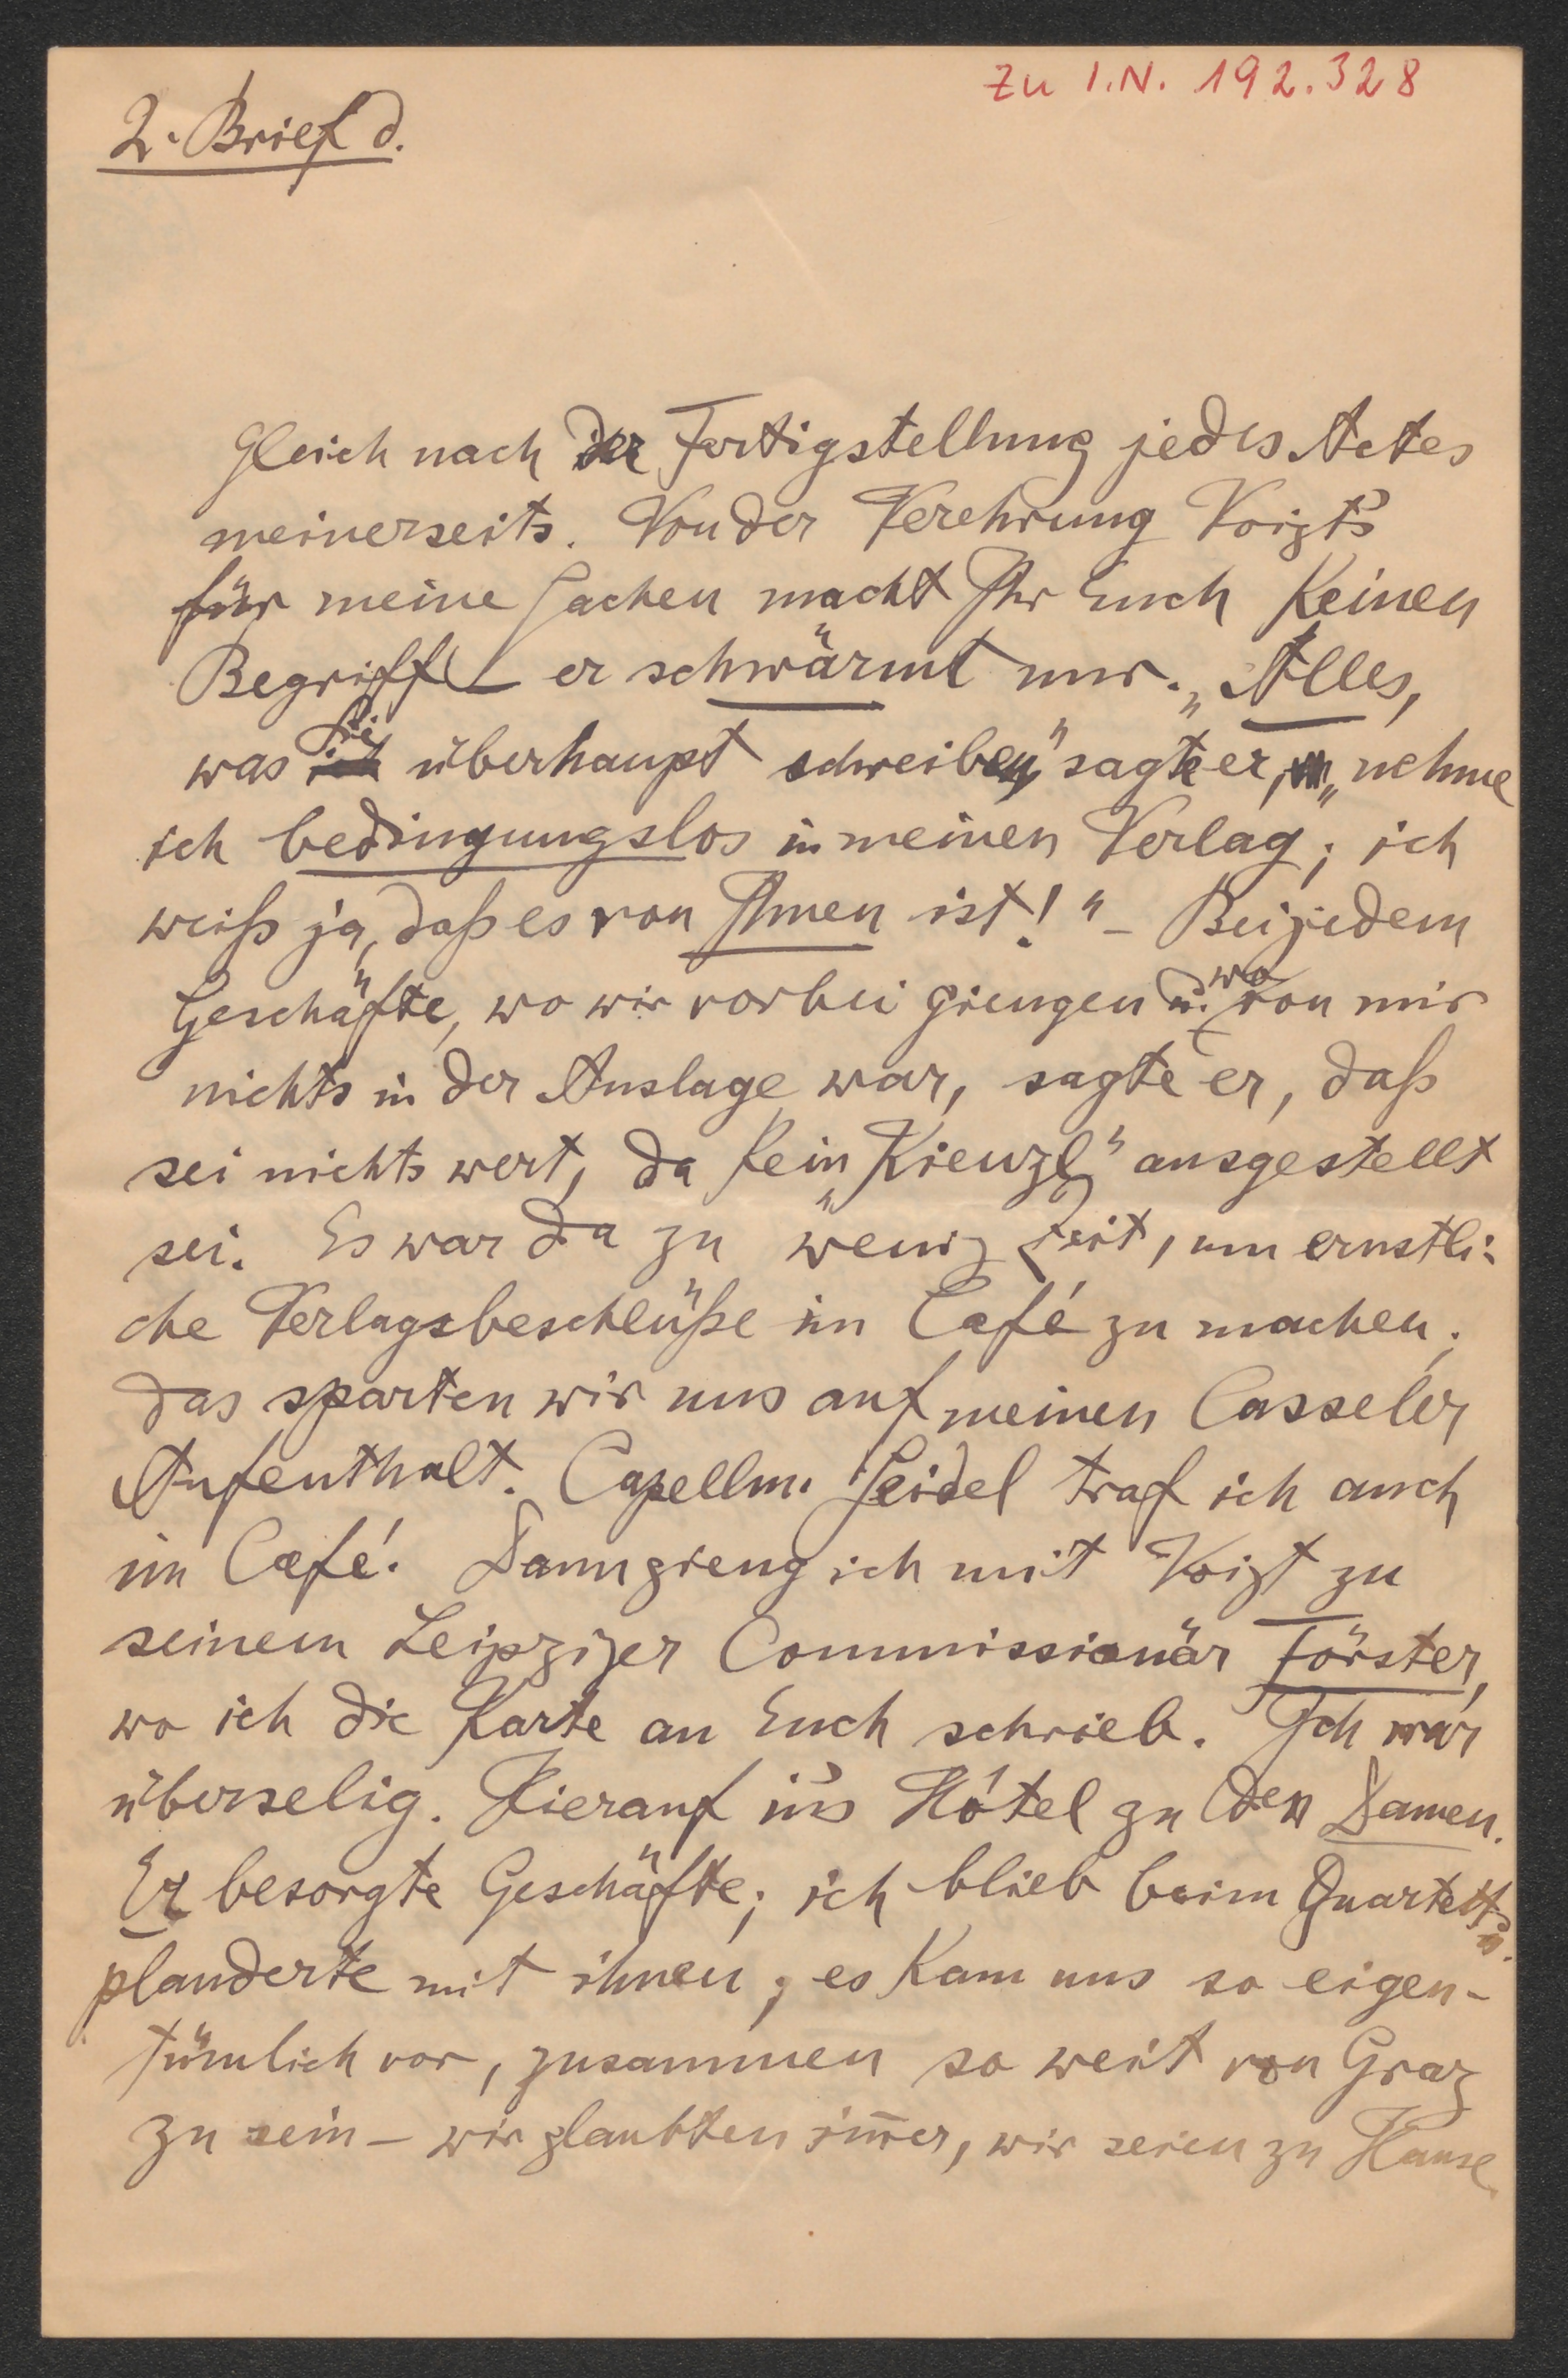 Zu I.N. 192.328
2. Brief d.
Gleich nach der Fertigstellung jedes Actes
meinerseits. Von der Verehrung Voigt's
für meine Sachen macht Ihr Euch keinen
Begriff – er schwärmt nur. „Alles,
was Sie überhaupt schreiben" sagte er, „nehme
ich bedingungslos in meinen Verlag; ich
weiß ja, daß es von Ihnen ist!" – Bei jedem
Geschäfte, wo wir vorbei giengen u. wo von mir
nichts in der Auslage war, sagte er, daß
sei nichts wert, da kein „Kienzl" ausgestellt
sei. Es war da zu wenig Zeit, um ernstli:
che Verlagsbeschlüße im Café zu machen;
das sparten wir uns auf meinen Casseler
Aufenthalt. Capellm. Seidel traf ich auch
im Café. Dann gieng ich mit Voigt zu
seinem Leipziger Commissionär Förster,
wo ich die Karte an Euch schrieb. Ich war
überselig. Hierauf in's Hôtel zu den Damen.
Er besorgte Geschäfte; ich blieb beim Quartett u.
plauderte mit ihnen; es kam uns so eigen-
tümlich vor, zusammen so weit von Graz
zu sein – wir glaubten im̅er, wir seien zu Hause.